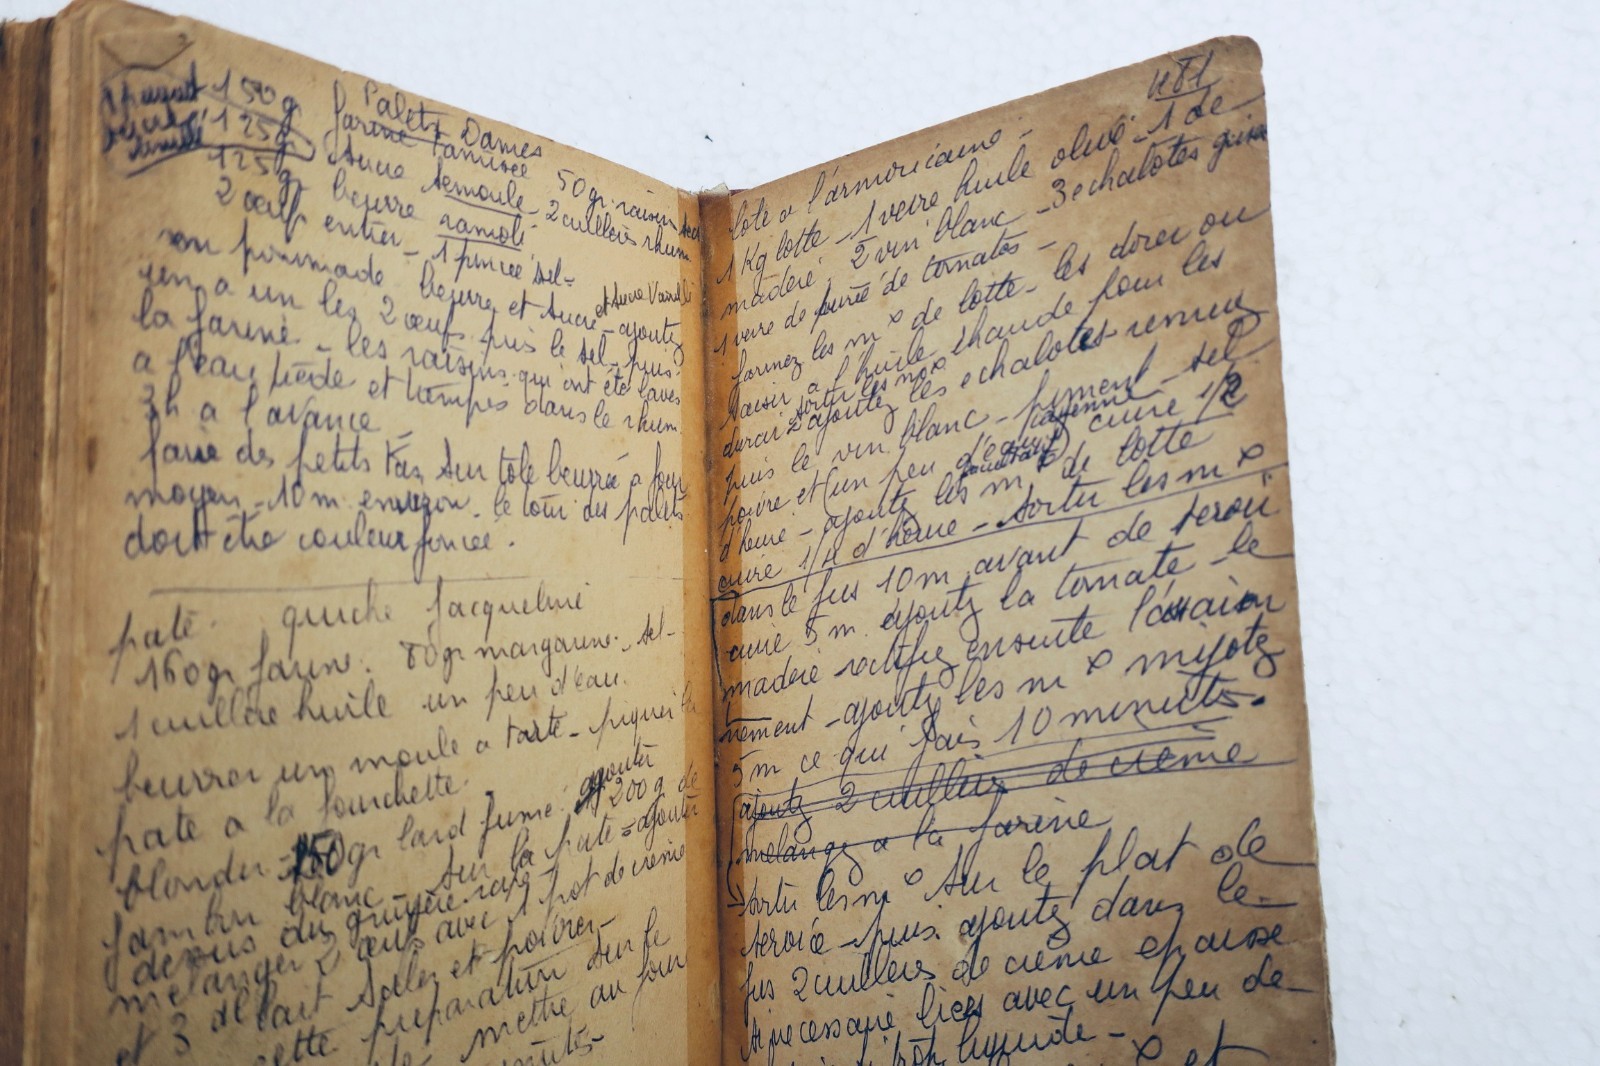 Palets Dames
150 g farine tamisée 50 gr. raisin sec
125 g sucre semoule - 2 cuillères rhum
125 g beurre ramoli
2 oeufs entier - 1 pincée sel -
en pommade beurre et sucre et sucre Vanillé - ajoutez
un a un les 2 oeufs puis le sel - puis
la farine - les raisins qui ont été lavés
a l'eau tiède et trempés dans le rhum
3h a l'avance -
faire des petits tas sur tole beurrée a four
moyen - 10 m environ - le tour des palets
doit être couleur foncée.
quiche Jacqueline
pate.
160 gr farine. 80 gr margarine. sel -
1 cuillère huile un peu d'eau.
beurrer un moule a tarte - piquer la
pate a la fourchette.
blondir - 150 gr lard fumé. ajouter 200 g de
jambon blanc - sur la pate = ajouter
dessus du gruyère rapé
mélanger 2 oeufs avec 1 pot de crème
et 3 de lait saler et poivrer -
cette préparation sur le
mettre au four
481
lote a l'armoricaine -
1 Kg lotte - 1 verre huile olive - 1 de
madère 2 vin blanc - 3 echalotes grise
1 verre de purée de tomates -
farinez les mx de lotte - les dorer ou
saisir a l'huile chaude pour les
durcir sortir les mx
ajoutez les echalotes remuez
puis le vin blanc - piment - sel
poivre et (un peu d'eau) cayenne cuire 1/2
d'heure - ajoutez les mx de lotte
cuire 1/4 d'heure - sortir les mx
dans le jus 10 m avant de servir
cuire 5 m ajoutez la tomate - le
madère rectifiez ensuite l'assaison
nement - ajoutez les mx mijotez
5 m ce qui fais 10 minutes -
ajoutez 2 cuillères de crème
mélangez a la farine
sortir les mx sur le plat de
service - puis ajoutez dans le
jus 2 cuillères de crème epaisse
si necessaire liées avec un peu de
trop liquide -
et